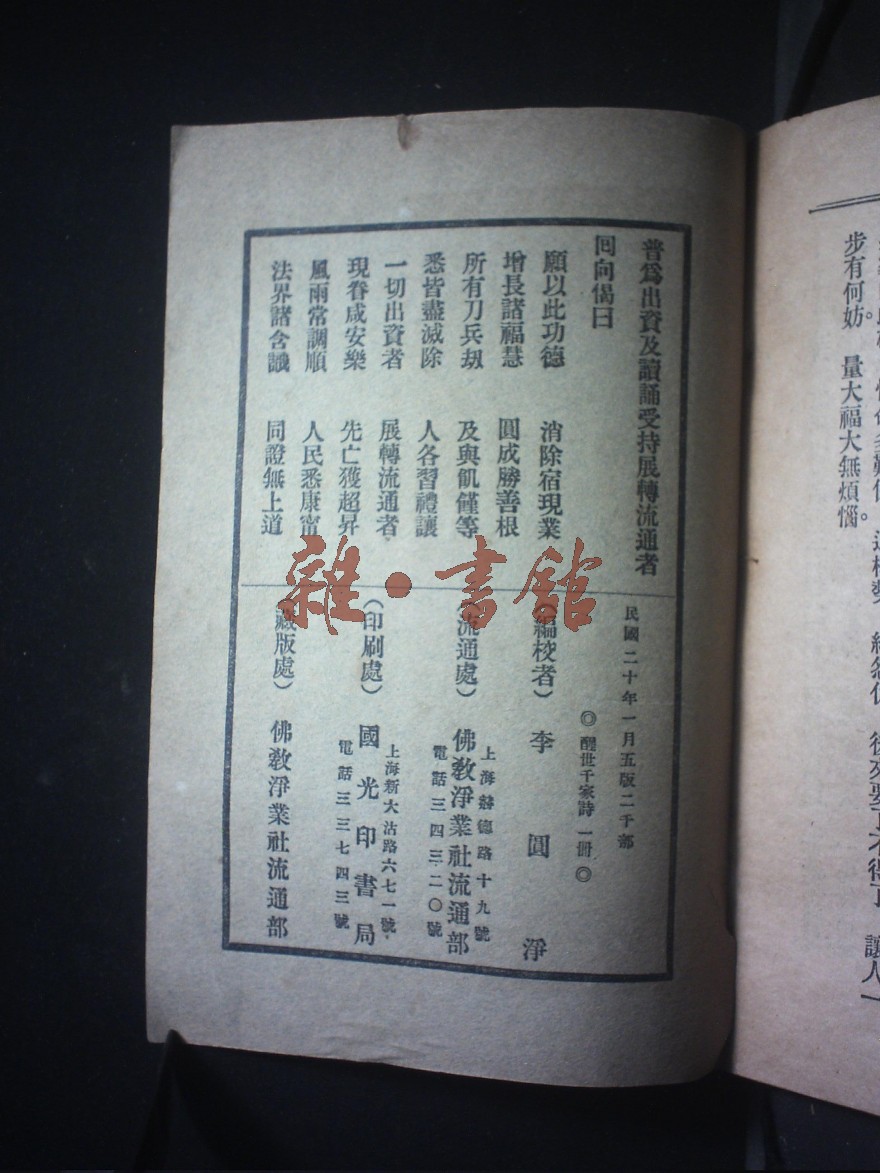 普爲出資及讀誦受持展轉流通者
囘向偈曰
願以此功德　消除宿現業
增長諸福慧　圓成勝善根
所有刀兵劫　及與飢饉等
悉皆盡滅除　人各習禮讓
一切出資者　展轉流通者
現眷咸安樂　先亡獲超昇
風雨常調順　人民悉康甯
法界諸含識　同證無上道
民國二十年一月五版二千部
◎醒世千家詩一冊◎
（編校者）李圓淨
上海赫德路十九號
（流通處）佛敎淨業社流通部
電話三四三二〇號
上海新大沽路六七一號
（印刷處）國光印書局
電話三三七四三號
（藏版處）佛敎淨業社流通部
雜·書館
讓人一
步有何妨。　量大福大無煩惱。